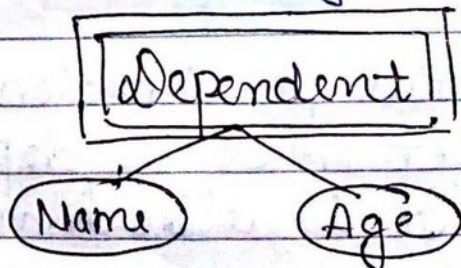 Dependent
Name
Age